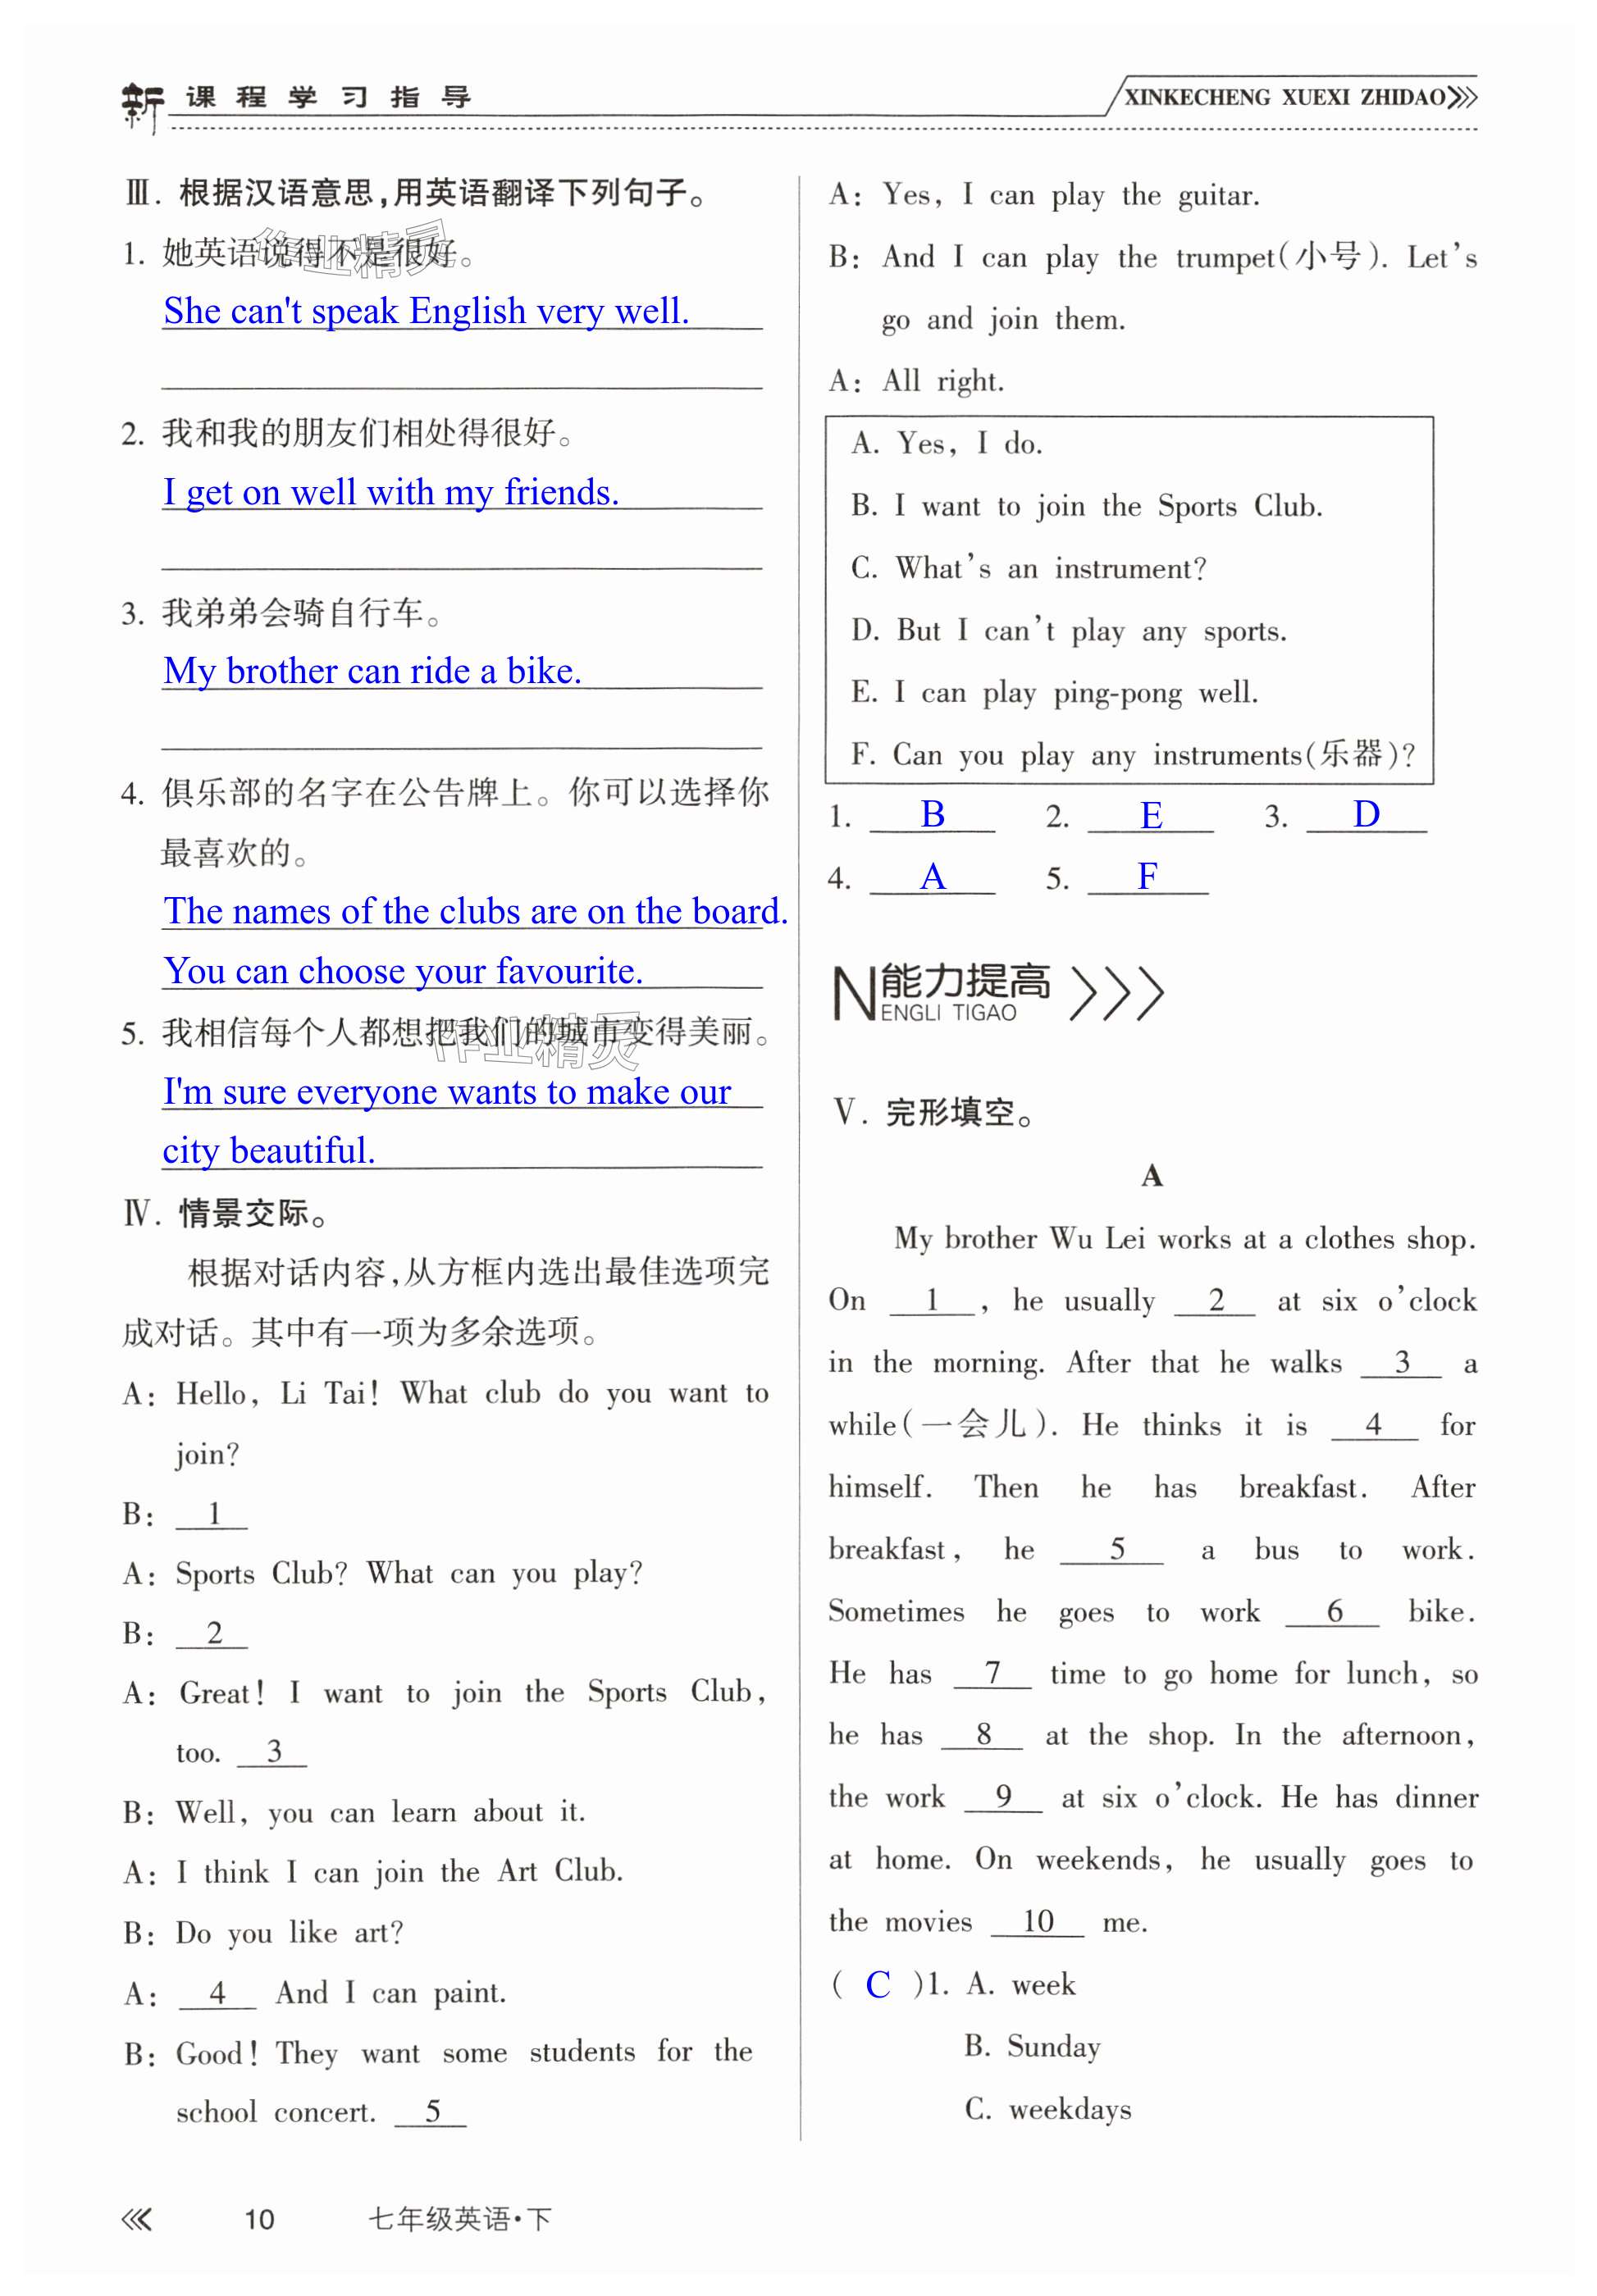 新课程学习指导
XINKECHENG XUEXI ZHIDAO
Ⅲ. 根据汉语意思,用英语翻译下列句子。
1. 她英语说得不是很好。
作业精灵
She can't speak English very well.
2. 我和我的朋友们相处得很好。
I get on well with my friends.
3. 我弟弟会骑自行车。
My brother can ride a bike.
4. 俱乐部的名字在公告牌上。你可以选择你
最喜欢的。
The names of the clubs are on the board.
You can choose your favourite.
5. 我相信每个人都想把我们的城市变得美丽。
作业精灵
I'm sure everyone wants to make our
city beautiful.
Ⅳ. 情景交际。
根据对话内容,从方框内选出最佳选项完
成对话。其中有一项为多余选项。
A: Hello, Li Tai! What club do you want to
join?
B: 1
A: Sports Club? What can you play?
B: 2
A: Great! I want to join the Sports Club,
too. 3
B: Well, you can learn about it.
A: I think I can join the Art Club.
B: Do you like art?
A: 4 And I can paint.
B: Good! They want some students for the
school concert. 5
A: Yes, I can play the guitar.
B: And I can play the trumpet(小号). Let's
go and join them.
A: All right.
A. Yes, I do.
B. I want to join the Sports Club.
C. What's an instrument?
D. But I can't play any sports.
E. I can play ping-pong well.
F. Can you play any instruments(乐器)?
1. B 2. E 3. D
4. A 5. F
N能力提高
ENGLI TIGAO
Ⅴ. 完形填空。
A
My brother Wu Lei works at a clothes shop.
On 1, he usually 2 at six o'clock
in the morning. After that he walks 3 a
while(一会儿). He thinks it is 4 for
himself. Then he has breakfast. After
breakfast, he 5 a bus to work.
Sometimes he goes to work 6 bike.
He has 7 time to go home for lunch, so
he has 8 at the shop. In the afternoon,
the work 9 at six o'clock. He has dinner
at home. On weekends, he usually goes to
the movies 10 me.
( C )1. A. week
B. Sunday
C. weekdays
10 七年级英语·下